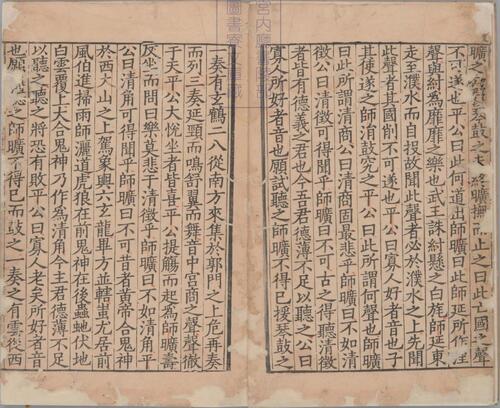 宮内廳
圖書寮文庫
曠之鼓之未終曠撫而止之曰此亡國之聲
不可遂也平公曰此何道出師曠曰此師延所作淫
聲與紂為靡靡之樂也武王誅紂懸之白旄師延東
走至濮水而自投故聞此聲者必於濮水之上先聞
此聲者其國削不可遂也平公曰寡人好者音也子
其使遂之師涓鼓究之平公曰此所謂何聲也師曠
曰此所謂清商公曰清商固最悲乎師曠曰不如清
徵公曰清徵可得聞乎師曠曰不可古之得聽清徵
者皆有德義之君也今吾君德薄不足以聽之公曰
寡人所好者音也願試聽之師曠不得已援琴鼓之
一奏有玄鶴二八從南方來集於郭門之上危再奏
而列三奏延頸而鳴舒翼而舞音中宮商之聲聲徹
于天平公大悅坐者皆喜平公提觴而起為師曠壽
反坐而問曰樂莫悲于清徵乎師曠曰不如清角平
公曰清角可得聞乎師曠曰不可昔者黃帝合鬼神
於西大山之上駕象輿六玄龍畢方並轄蚩尤居前
風伯進掃雨師灑道虎狼在前鬼神在後蟲蛇伏地
白雲覆上大合鬼神乃作為清角今主君德薄不足
以聽之聽之將恐有敗平公曰寡人老矣所好者音
也願之師曠不得已而鼓之一奏之有雲從西